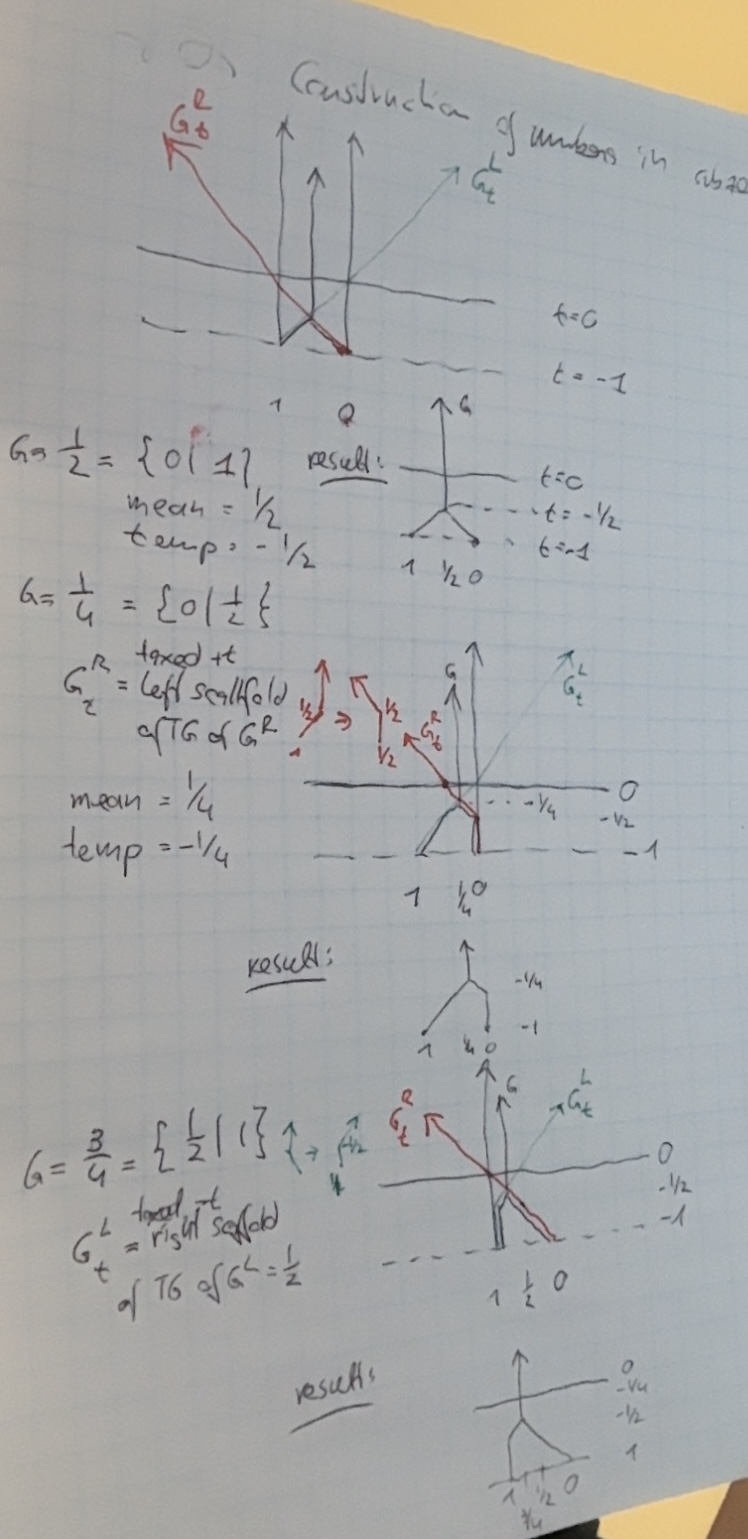 Construction of numbers in subzero
G_t^R
G_t^L
t=0
t=-1
1 0
G= 1/2 = {0|1}
mean = 1/2
temp = -1/2
result:
G
t=0
t=-1/2
t=-1
1 1/2 0
G= 1/4 = {0|1/2}
taxed +t
G_t^R = left scaffold
of TG of G^R
1/2
1
1/2
1/2
G_t^R
G
G_t^L
0
-1/4
-1/2
-1
1 1/4 0
mean = 1/4
temp = -1/4
result:
-1/4
-1
1 1/4 0
G = 3/4 = {1/2|1}
-1/2
G_t^R
G
G_t^L
0
-1/2
-1
1 1/2 0
taxed -t
G_t^L = right scaffold
of TG of G^L = 1/2
result:
0
-1/4
-1/2
1
1 1/2 0
3/4